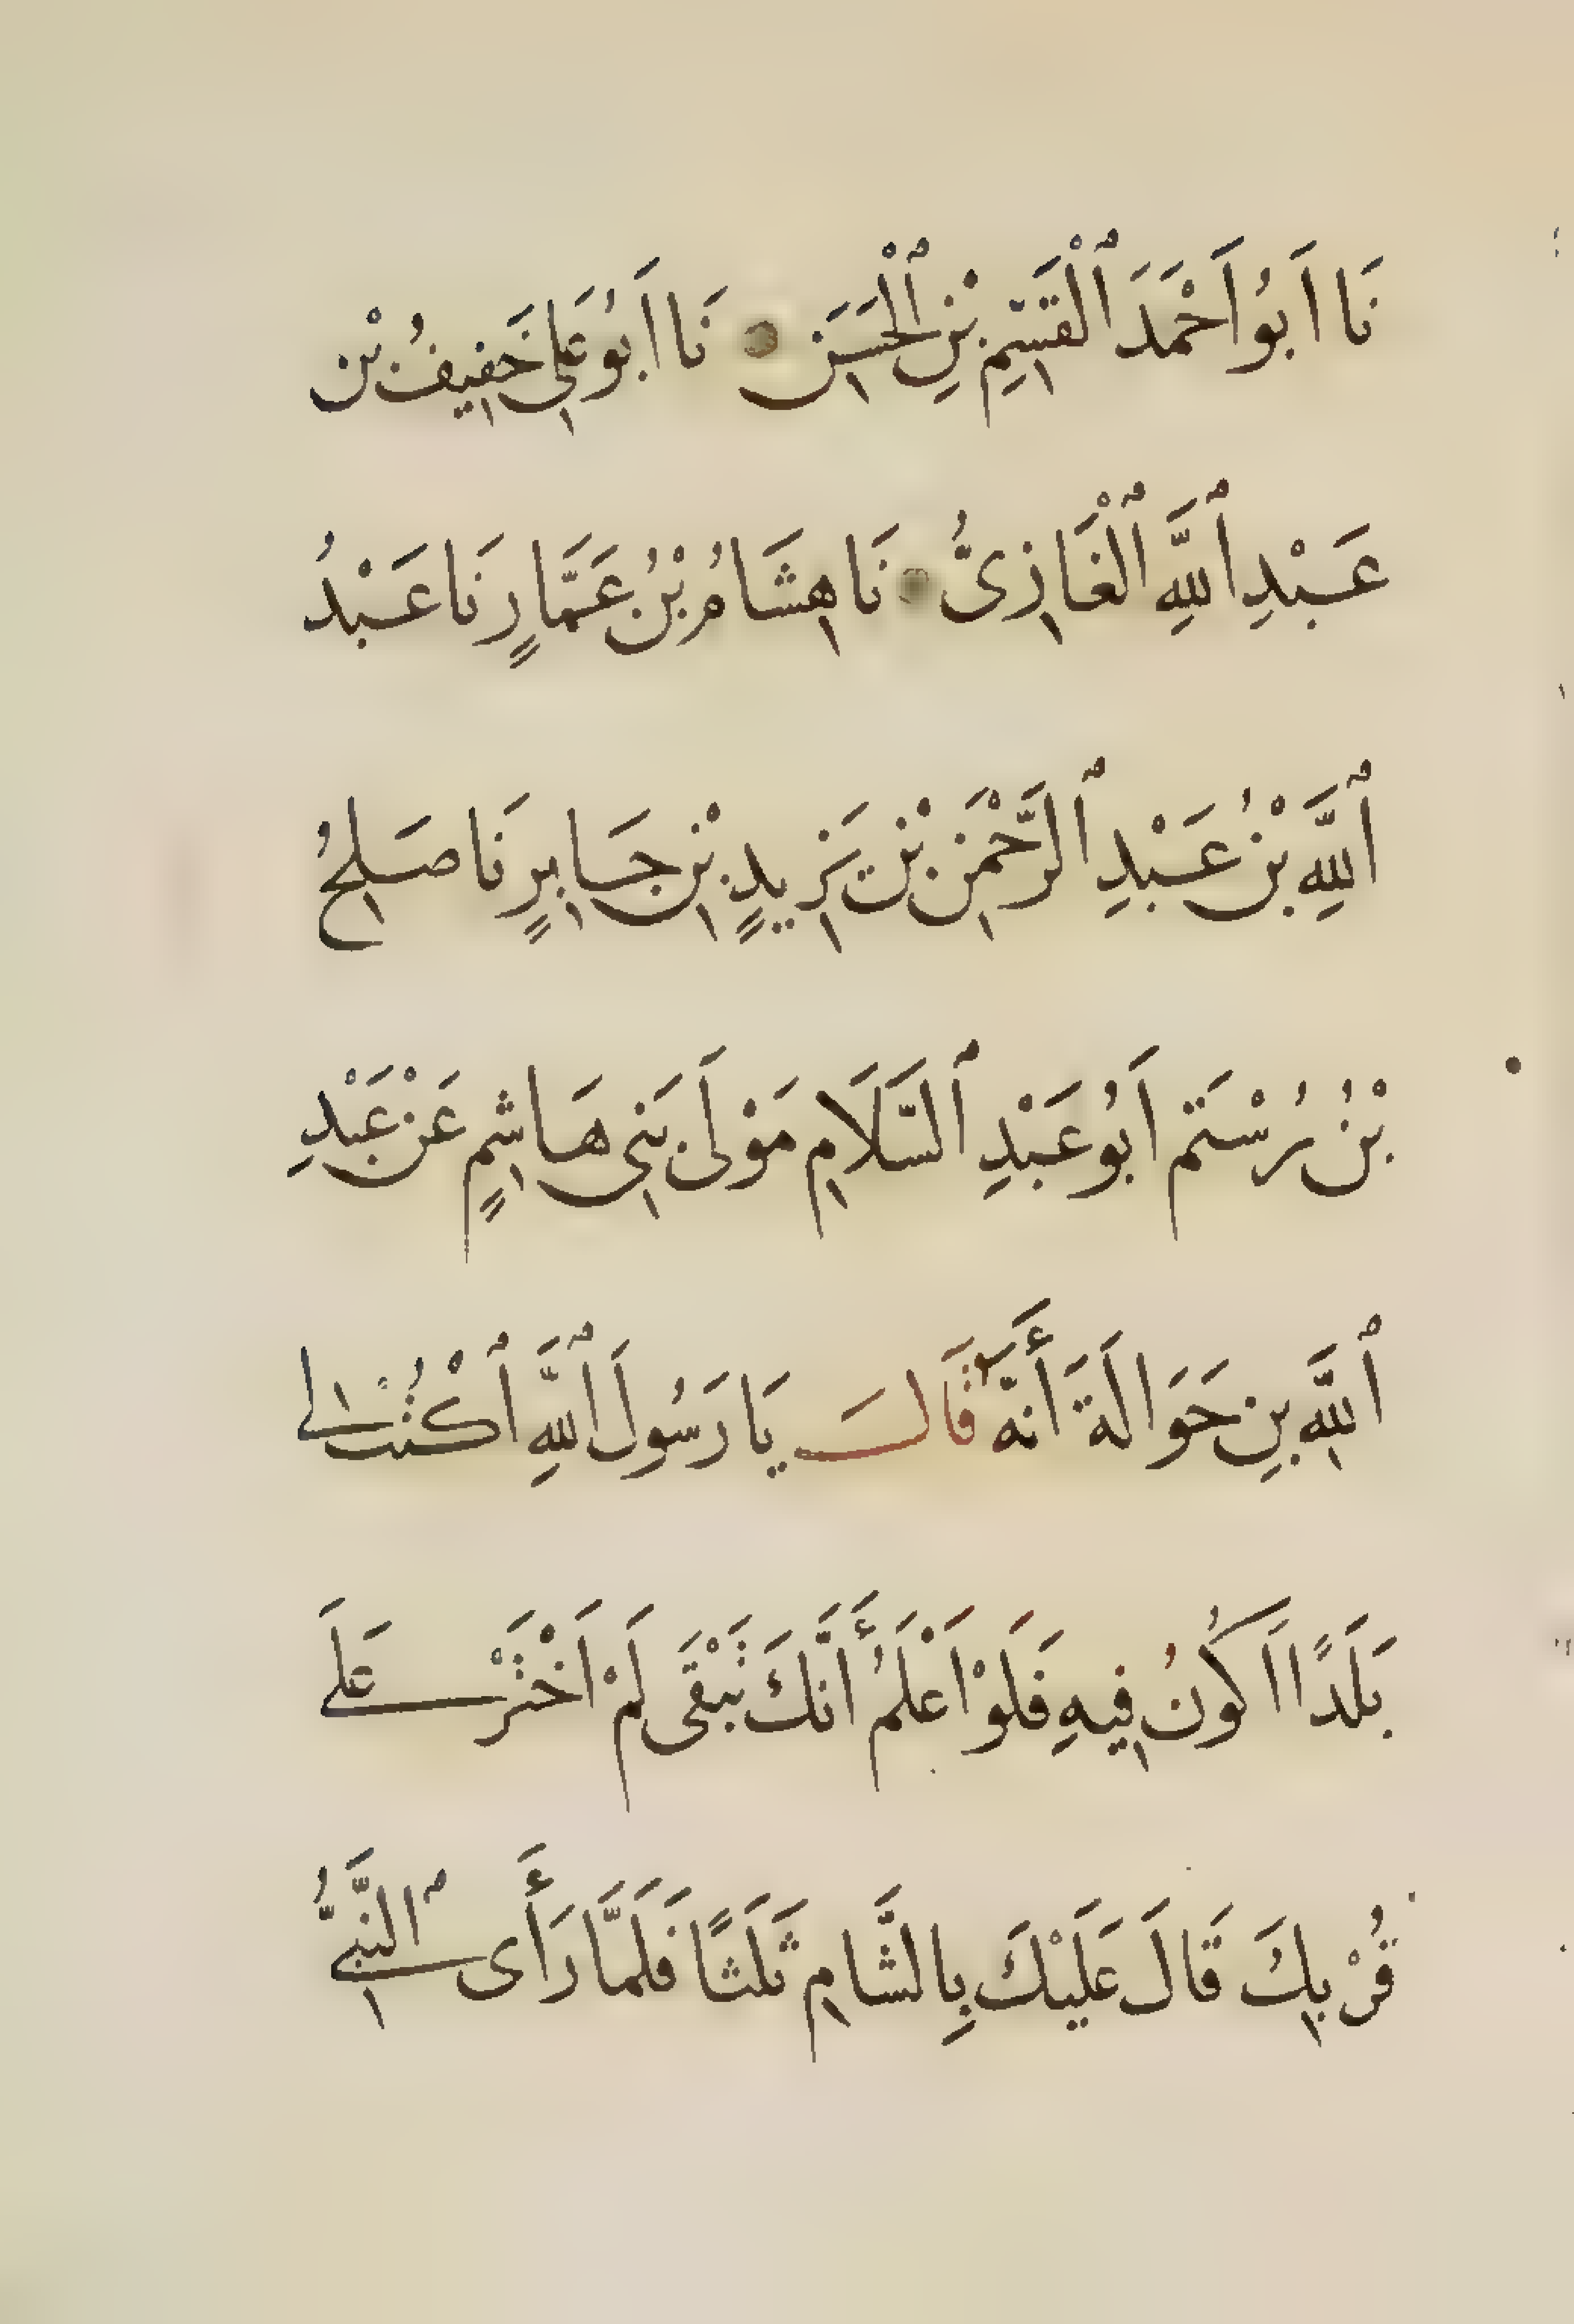 نَا اَبُو اَحْمَدَ ٱلْقَسِمِ بْنِ ٱلْحَسَنِ نَا اَبُو عَلِي خَفِيفُ بْن
عَبْدِ ٱللَّهِ ٱلْغَازِىُّ نَا هِشَامُ بْنُ عَمَّارٍ نَا عَبْدُ
ٱللَّهِ بْنُ عَبْدِ ٱلرَّحْمَنِ بْن يَزِيدٍ بْنِ جَابِرٍ نَا صَلِحُ
بْنُ رُسْتَم اَبُو عَبْدِ ٱلسَّلَامِ مَوْلَى بَنِي هَاشِمٍ عَنْ عَبْدِ
ٱللَّهِ بِن حَوَالَةَ أَنَّهُ قَالَ يَا رَسُولَ ٱللَّهِ ٱكْتُبْ لِي
بَلَدًا اَكُونُ فِيهِ فَلَوْ اَعْلَمُ أَنَّكَ تَبْقَى لَمْ اَخْتَرْ عَلَى
قُرْبِكَ قَالَ عَلَيْكَ بِالشَّامِ ثَلَثًا فَلَمَّا رَأَى ٱلنَّبِيُّ